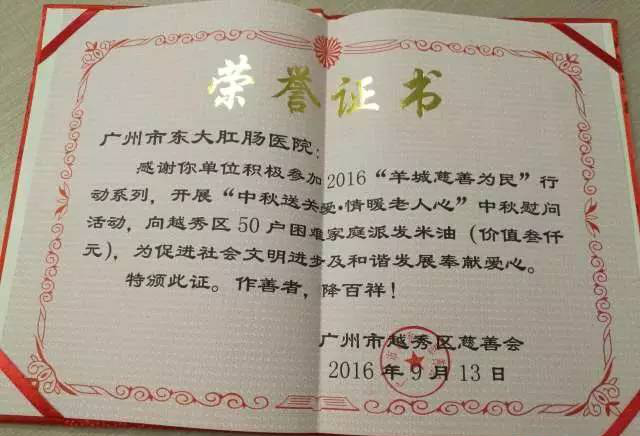 荣誉证书
广州市东大肛肠医院：
感谢你单位积极参加2016“羊城慈善为民”行
动系列，开展“中秋送关爱·情暖老人心”中秋慰问
活动，向越秀区50户困难家庭派发米油（价值叁仟
元），为促进社会文明进步及和谐发展奉献爱心。
特颁此证。作善者，降百祥！
广州市越秀区慈善会
2016年9月13日